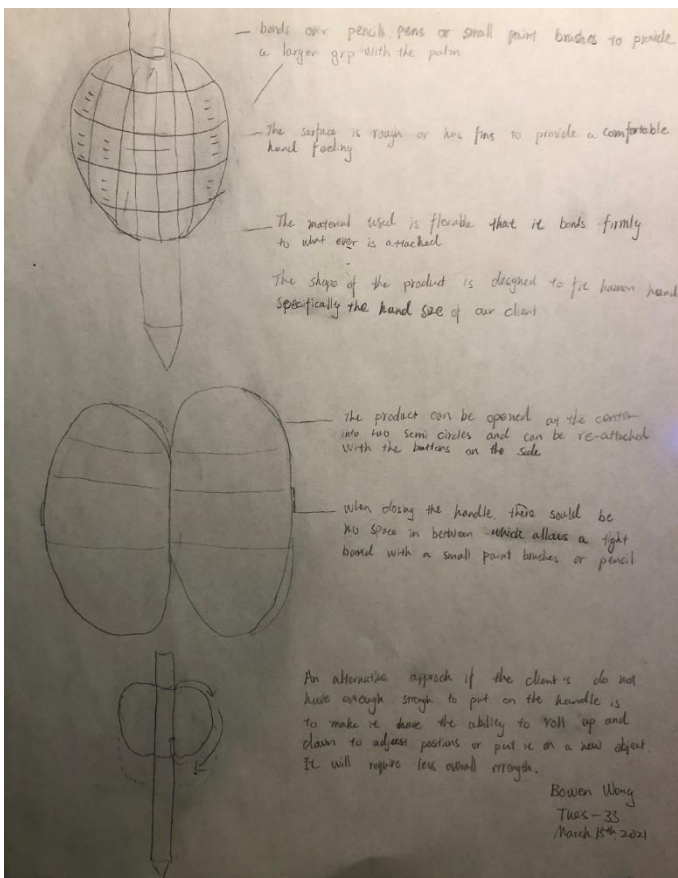 bonds over pencils, pens or small paint brushes to provide
a larger grip with the palm
The surface is rough or has fins to provide a comfortable
hand feeling
The material used is flexable that it bonds firmly
to what ever is attached
The shape of the product is designed to fit human hand
specifically the hand size of our client
The product can be opened at the center
into two semi circles and can be re-attached
with the buttons on the side
When closing the handle, there sould be
no space in between which allows a tight
bond with a small paint brushes or pencil
An alternative approch if the client is do not
have enough strength to put on the handle is
to make it have the ability to roll up and
down to adjust positions or put it on a new object.
It will require less overall strength.
Bowen Wang
Tues - 33
March 15th, 2021